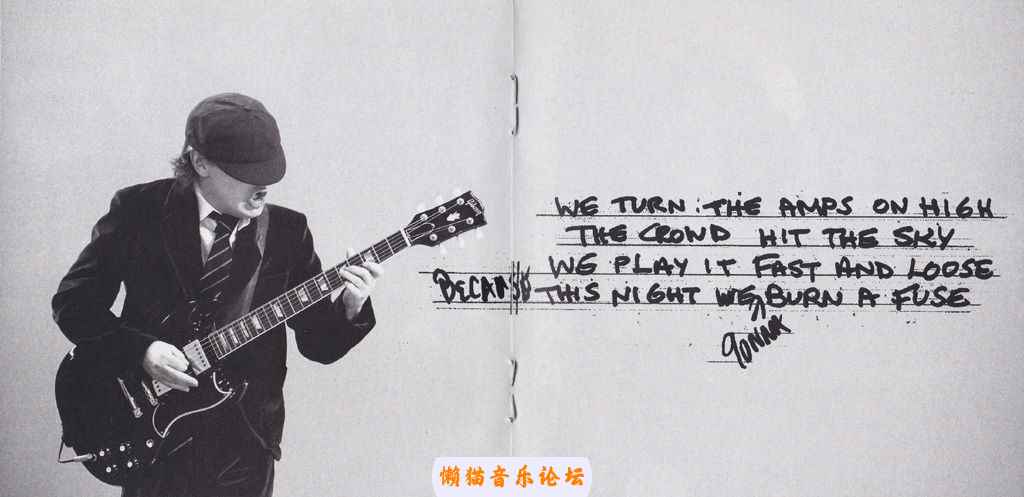 WE TURN THE AMPS ON HIGH
THE CROWD HIT THE SKY
WE PLAY IT FAST AND LOOSE
THIS NIGHT WE BURN A FUSE
GONNA
Gibson
懒猫音乐论坛